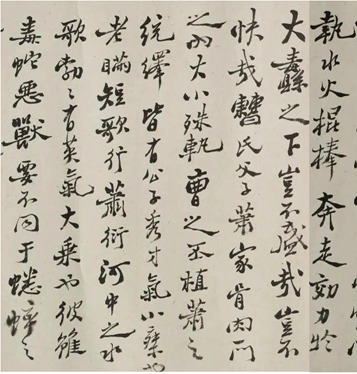 執水火棍捧奔走効力於
大纛之下豈不盛哉豈不
快哉曹氏父子蕭家骨肉一門
之内大小殊軌曹之丕植蕭之
統繹皆有公子秀才氣小乘也
老瞞短歌行蕭衍河中之水
歌勃〻有英氣大乘也彼雖
毒蛇惡獸要不同于蟋蟀之